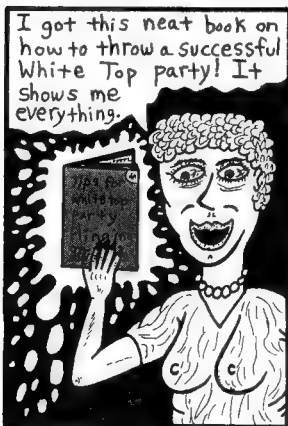 I got this neat book on
how to throw a successful
White Top party! It
shows me
everything.
tips for
white top
party